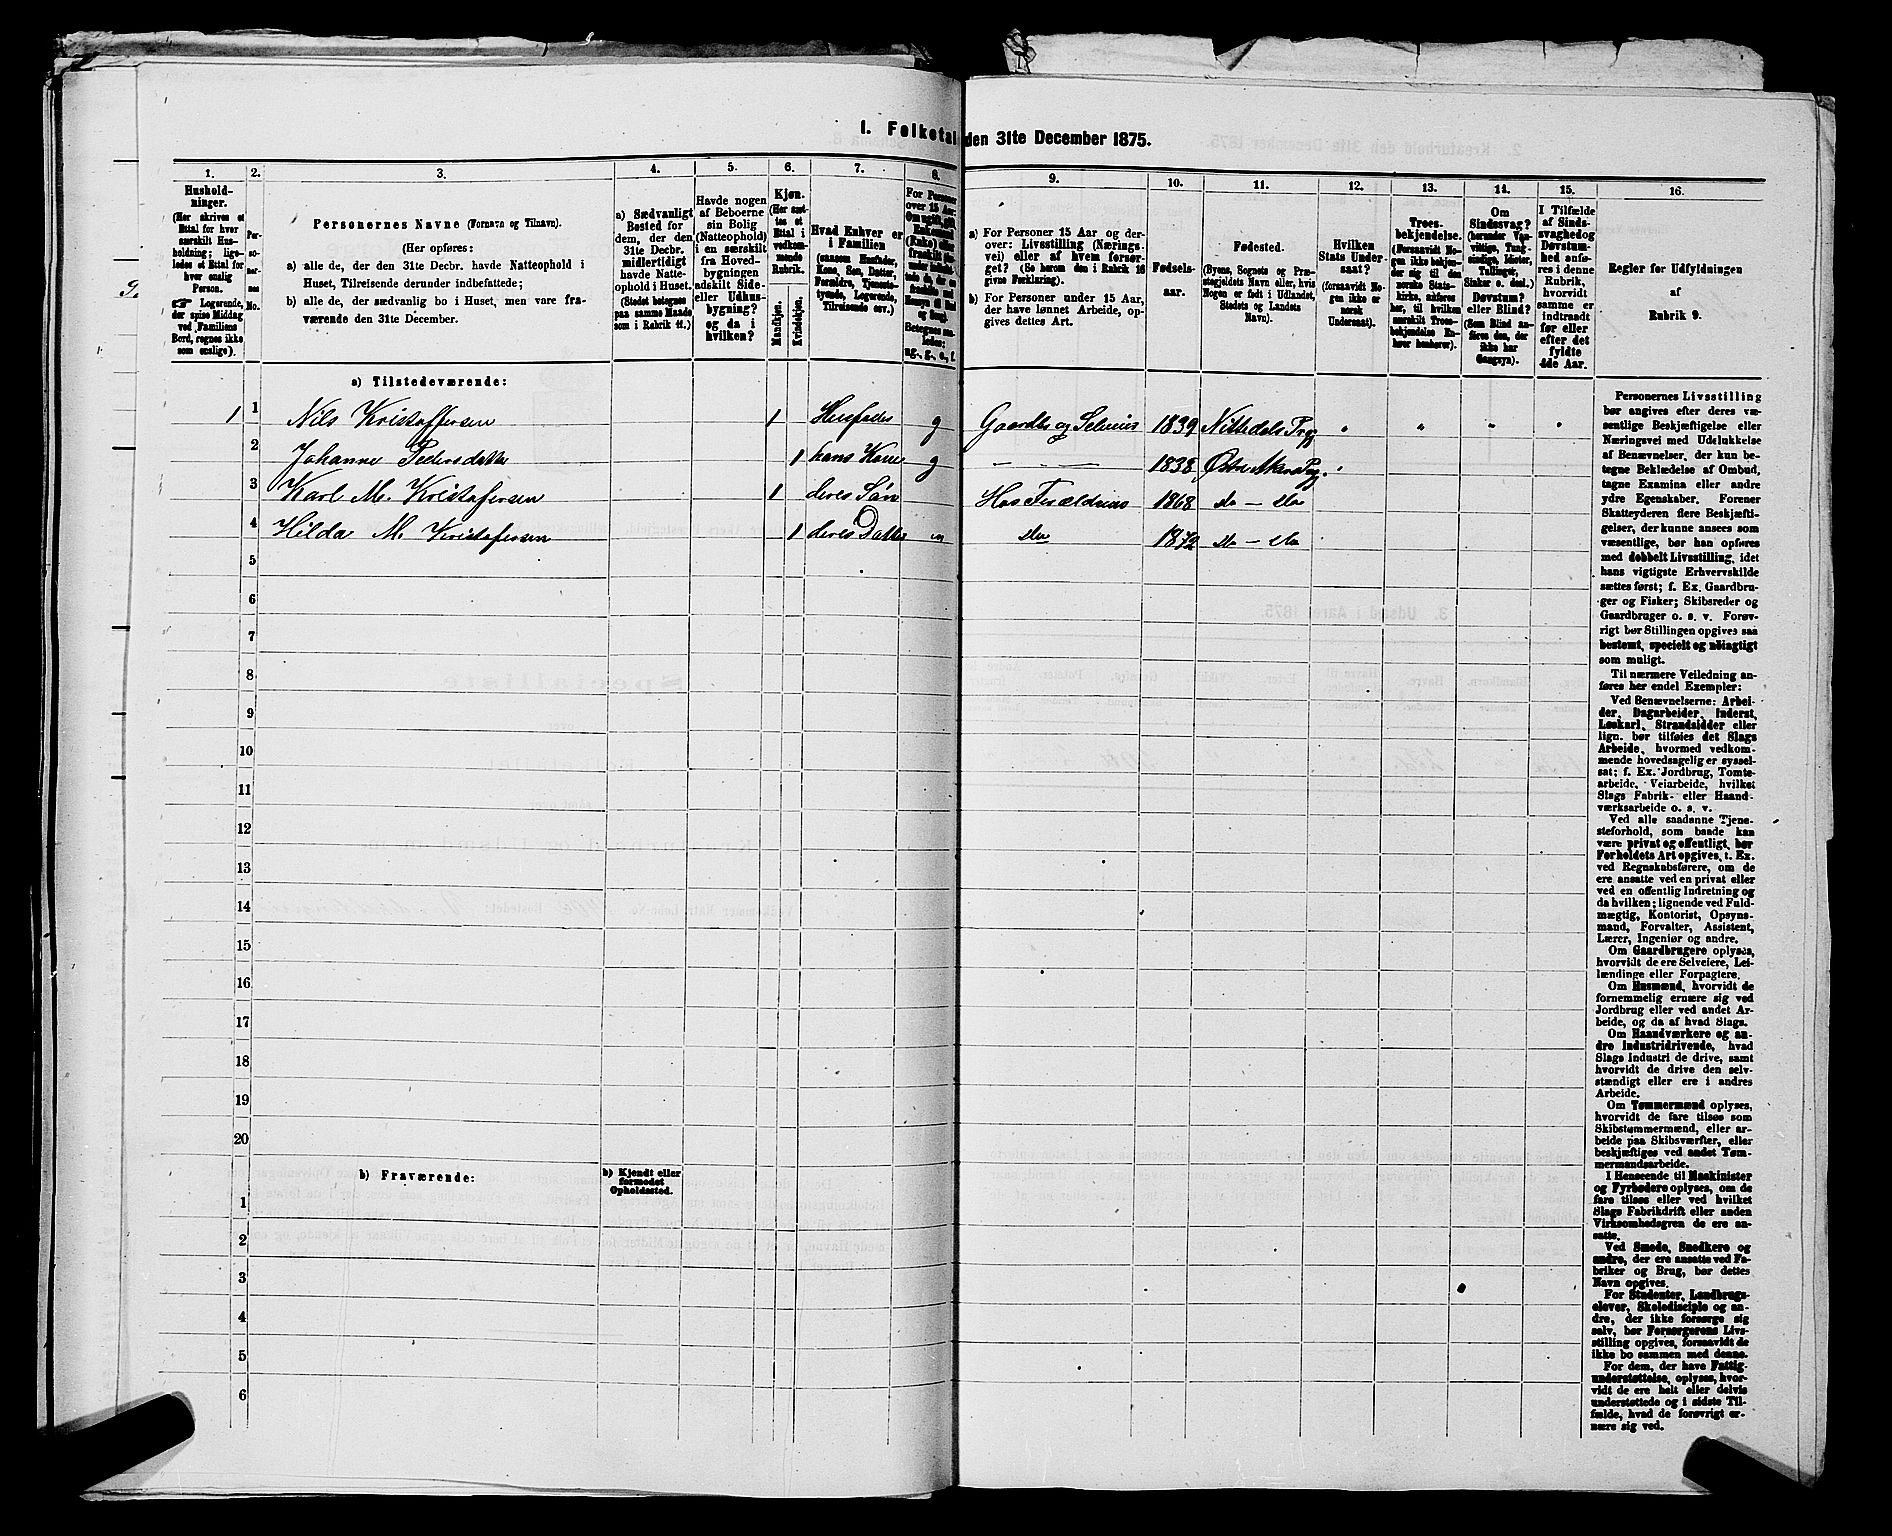 I. Folketal den 31te December 1875.
1. 2. 3. 4. 5. 6. 7. 8. 9. 10. 11. 12. 13. 14. 15. 16.
Hushold-
ninger.
(Her skrives et
Ettal for hver
særskilt Hus-
holdning; lige-
ledes et Ettal for
hver enslig
Person.
Logerende,
der spise Middag
ved Familiens
Bord, regnes ikke
som enslige).
Per-
so-
ner-
nes
No.
Personernes Navne (Fornavn og Tilnavn).
(Her opføres:
a) alle de, der den 31te Decbr. havde Natteophold i
Huset, Tilreisende derunder indbefattede;
b) alle de, der sædvanlig bo i Huset, men vare fra-
værende den 31te December.
a) Sædvanligt
Bosted for
dem, der den
31te Decbr.
midlertidigt
havde Natte-
ophold i Huset.
(Stedet betegnes
paa samme Maade
som i Rubrik 11.)
Havde nogen
af Beboerne
sin Bolig
(Natteophold)
i en særskilt
fra Hoved-
bygningen
adskilt Side-
eller Udhus-
bygning?
og da i
hvilken?
Kjøn.
(Her sæt-
tes et
Ettal i
vedkom-
mende
Rubrik.
Mandkjøn.
Kvindekjøn.
Hvad Enhver er
i Familien
(saasom Husfader,
Kone, Søn, Datter,
Forældre, Tjeneste-
tyende, Logerende,
Tilreisende osv.)
For Personer
over 15 Aar:
Om ugift, gift,
Enkemand
(Enke) eller
fraskilt
Betegnes saa-
ledes:
ug., g., e., f.
a) For Personer 15 Aar og der-
over: Livsstilling (Nærings-
vei) eller af hvem forsør-
get? (Se herom den i Rubrik 16
givne Forklaring).
b) For Personer under 15 Aar,
der have lønnet Arbeide, op-
gives dettes Art.
Fødsels-
aar.
Fødested.
(Byens, Sognets og Præ-
stegjeldets Navn eller, hvis
Nogen er født i Udlandet,
Stedets og Landets
Navn).
Hvilken
Stats Under-
saat?
(forsaavidt No-
gen ikke er
norsk
Undersaat).
Troes-
bekjendelse.
(Forsaavidt No-
gen ikke bekjen-
der sig til den
norske Stats-
kirke, anføres
her, til hvilken
særskilt Troes-
bekjendelse En-
hver henhører).
Om
Sindssvag?
(herunder Van-
vittige, Tung-
sindige, Idioter,
Tullinger,
Sinker o. desl.)
Døvstum?
eller Blind?
(Som Blind an-
føres den, der
ikke har
Gangsyn).
I Tilfælde
af Sinds-
svaghed og
Døvstum-
hed anfø-
res i denne
Rubrik,
hvorvidt
samme er
indtraadt
før eller
efter det
fyldte
4de Aar.
Regler for Udfyldningen
af
Rubrik 9.
a) Tilstedeværende:
1 1 Nils Kristoffersen 1 Husfader g Gaardbr og Selveier 1839 Nittedals Prg
2 Johanne Pedersdatter 1 hans Kone g — — 1838 Østre Akers Prg.
3 Karl M. Kristofersen 1 deres Søn Hos Forældrene 1868 do — do
4 Hilda M. Kristofersen 1 deres Datter do 1872 do — do
5
6
7
8
9
10
11
12
13
14
15
16
17
18
19
20
b) Fraværende:
b) Kjendt eller
formodet
Opholdssted.
1
2
3
4
5
6
Personernes Livsstilling
bør angives efter deres væ-
sentlige Beskjæftigelse eller
Næringsvei med Udelukkelse
af Benævnelser, der kun be-
tegne Beklædelse af Ombud,
tagne Examina eller andre
ydre Egenskaber. Forener
Skatteyderen flere Beskjæfti-
gelser, der kunne ansees som
væsentlige, bør han opføres
med dobbelt Livsstilling, idet
hans vigtigste Erhvervskilde
sættes først; f. Ex. Gaardbru-
ger og Fisker; Skibsreder og
Gaardbruger o. s. v. Forøv-
rigt bør Stillingen opgives saa
bestemt, specielt og nøiagtigt
som muligt.
Til nærmere Veiledning an-
føres her endel Exempler:
Ved Benævnelserne: Arbei-
der, Dagarbeider, Inderst,
Løskarl, Strandsidder eller
lign. bør tilføies det Slags
Arbeide, hvormed vedkom-
mende hovedsagelig er syssel-
sat; f. Ex. Jordbrug, Tomte-
arbeide, Veiarbeide, hvilket
Slags Fabrik- eller Haand-
værksarbeide o. s. v.
Ved alle saadanne Tjene-
steforhold, som baade kan
være privat og offentligt, bør
Forholdets Art opgives, t. Ex.
ved Regnskabsførere, om de
ere ansatte ved en privat eller
ved en offentlig Indretning og
da hvilken; lignende ved Fuld-
mægtig, Kontorist, Opsyns-
mand, Forvalter, Assistent,
Lærer, Ingeniør og andre.
Om Gaardbrugere oplyses,
hvorvidt de ere Selveiere, Lei-
lændinge eller Forpagtere.
Om Husmænd, hvorvidt de
fornemmelig ernære sig ved
Jordbrug eller ved andet Ar-
beide, og da af hvad Slags.
Om Haandværkere og an-
dre Industridrivende, hvad
Slags Industri de drive, samt
hvorvidt de drive den selv-
stændigt eller ere i andres
Arbeide.
Om Tømmermænd oplyses,
hvorvidt de fare tilsøs som
Skibstømmermænd, eller ar-
beide paa Skibsværfter, eller
beskjæftiges ved andet Tøm-
mermandsarbeide.
I Henseende til Maskinister
og Fyrbødere oplyses, om de
fare tilsøs eller ved hvilket
Slags Fabrikdrift eller anden
Virksomhedsgren de ere an-
satte.
Ved Smede, Snedkere og
andre, der ere ansatte ved Fa-
briker og Brug, bør dettes
Navn opgives.
For Studenter, Landbrugs-
elever, Skoledisciple og an-
dre, der ikke forsørge sig
selv, bør Forsørgerens Livs-
stilling opgives, forsaavidt de
ikke bo sammen med denne.
For dem, der have Fattig-
understøttelse, oplyses, hvor-
vidt de ere helt eller delvis
understøttede og i sidste Til-
fælde, hvad de forøvrigt er-
nære sig ved.